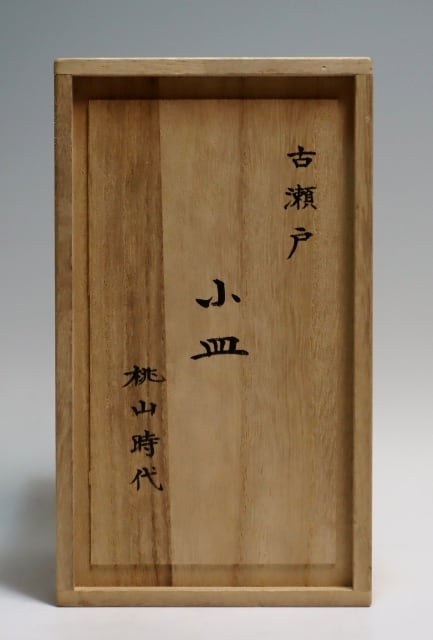 古瀬戸
小皿
桃山時代